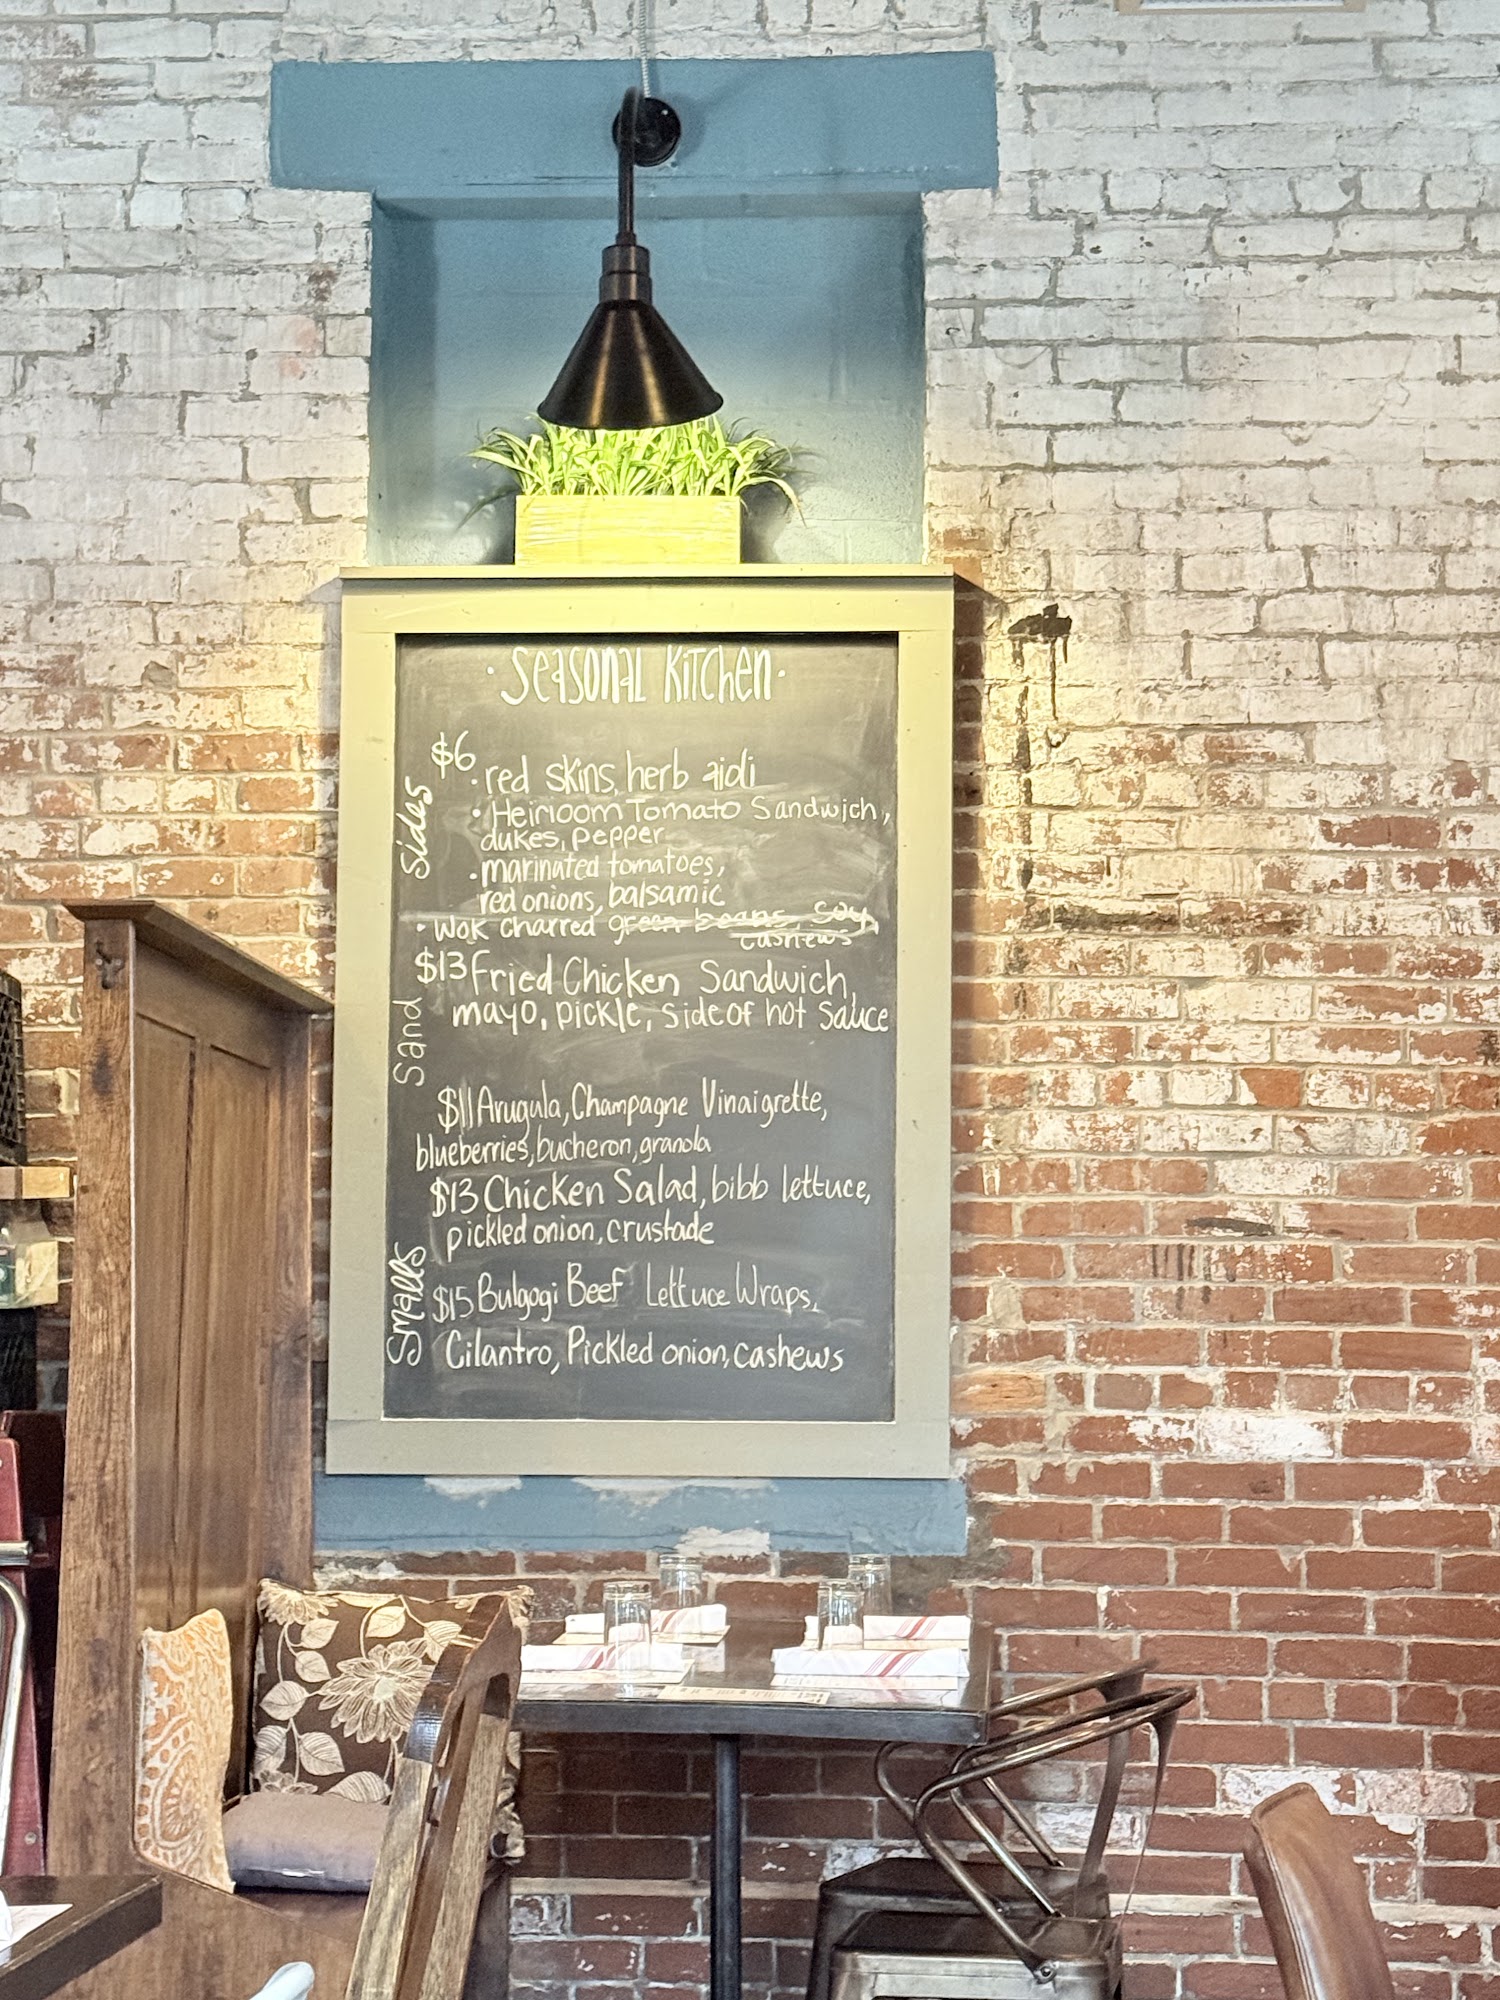 · Seasonal Kitchen ·
Sides
$6
· red skins, herb aioli
· Heirloom Tomato Sandwich,
dukes, pepper
· marinated tomatoes,
red onions, balsamic
· Wok charred green beans, soy,
cashews
Sand
$13 Fried Chicken Sandwich,
mayo, pickle, side of hot sauce
Smalls
$11 Arugula, Champagne Vinaigrette,
blueberries, bucheron, granola
$13 Chicken Salad, bibb lettuce,
pickled onion, crustade
$15 Bulgogi Beef Lettuce Wraps,
Cilantro, Pickled onion, cashews